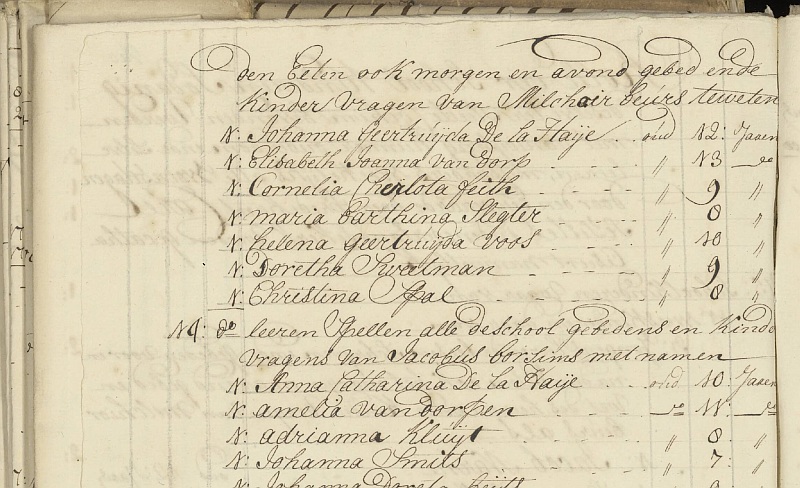 den Eeten ook morgen en avond gebed ende
kinder vragen van Milchair beurs teweten
N: Johanna Geertruijda De la Haije .. oud 12: Jaaren
N: Elisabeth Joanna van Dorp - - - - - " 13 _ do
N: Cornelia Cherlota feith - - - - - " 9 "
N: maria Barthing Slegter - - - - - " 8 "
N: helena geertruijda voos - - - - - " 10 "
N: Doretha Sweelman - - - - - " 9 "
N: Christina Spal - - - - - " 8 "
14: do leeren Spellen alle de school gebedens en Kinde
vragens van Jacobus borsims met namen
N: Anna Catharina De la Haije - - oud 10: Jaaren
N: amelia van dorpen - - - do 11: _ do
N: adrianna Kluijt - - - - " 8: "
N: Johanna Smits - - - - " 7: "
N: Johanna